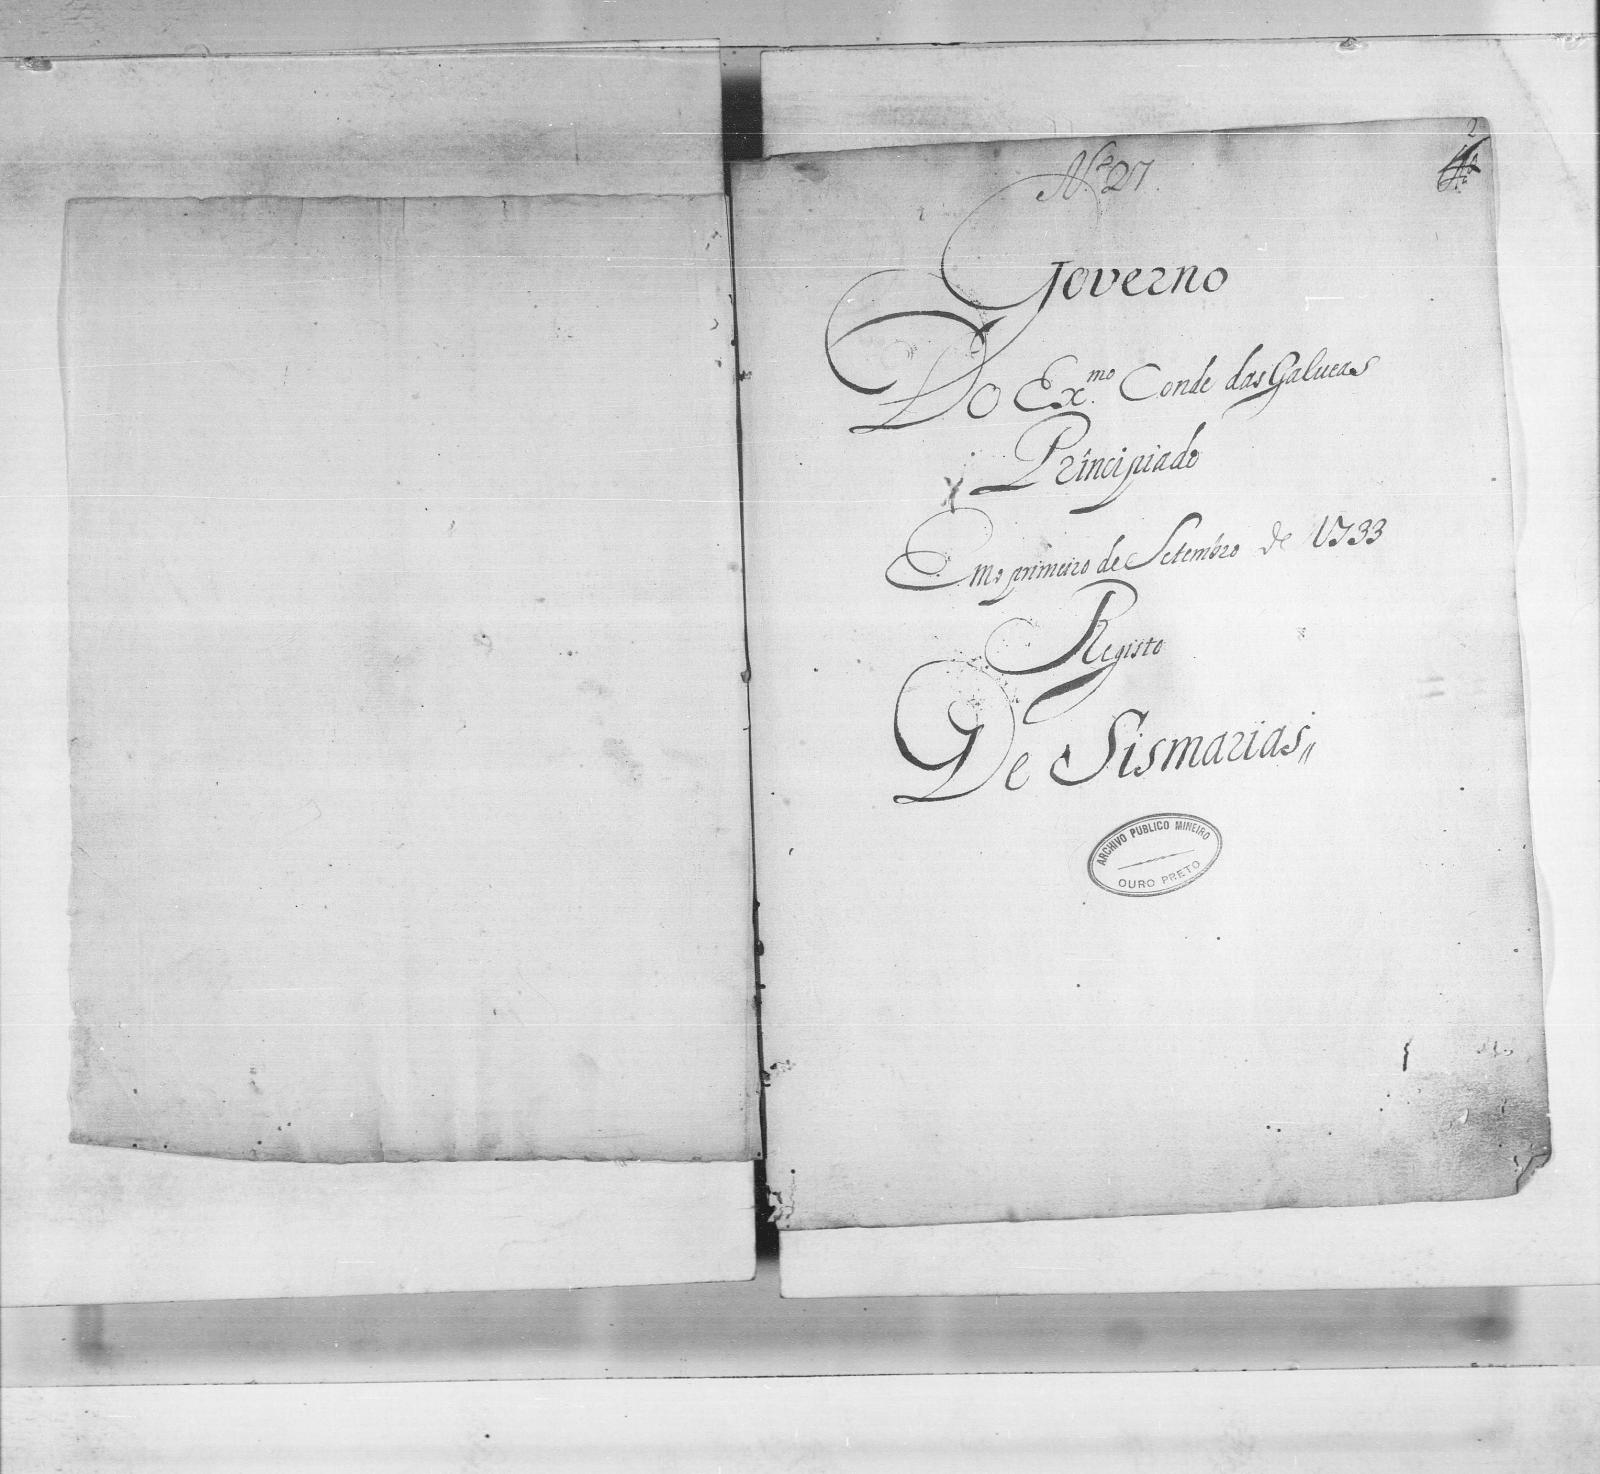 2
Nº 27
Governo
Do Exmo. Conde das Galueas
Principiado
Em o primeiro de Setembro de 1733
Registo
De Sismarias
ARCHIVO PUBLICO MINEIRO
OURO PRETO